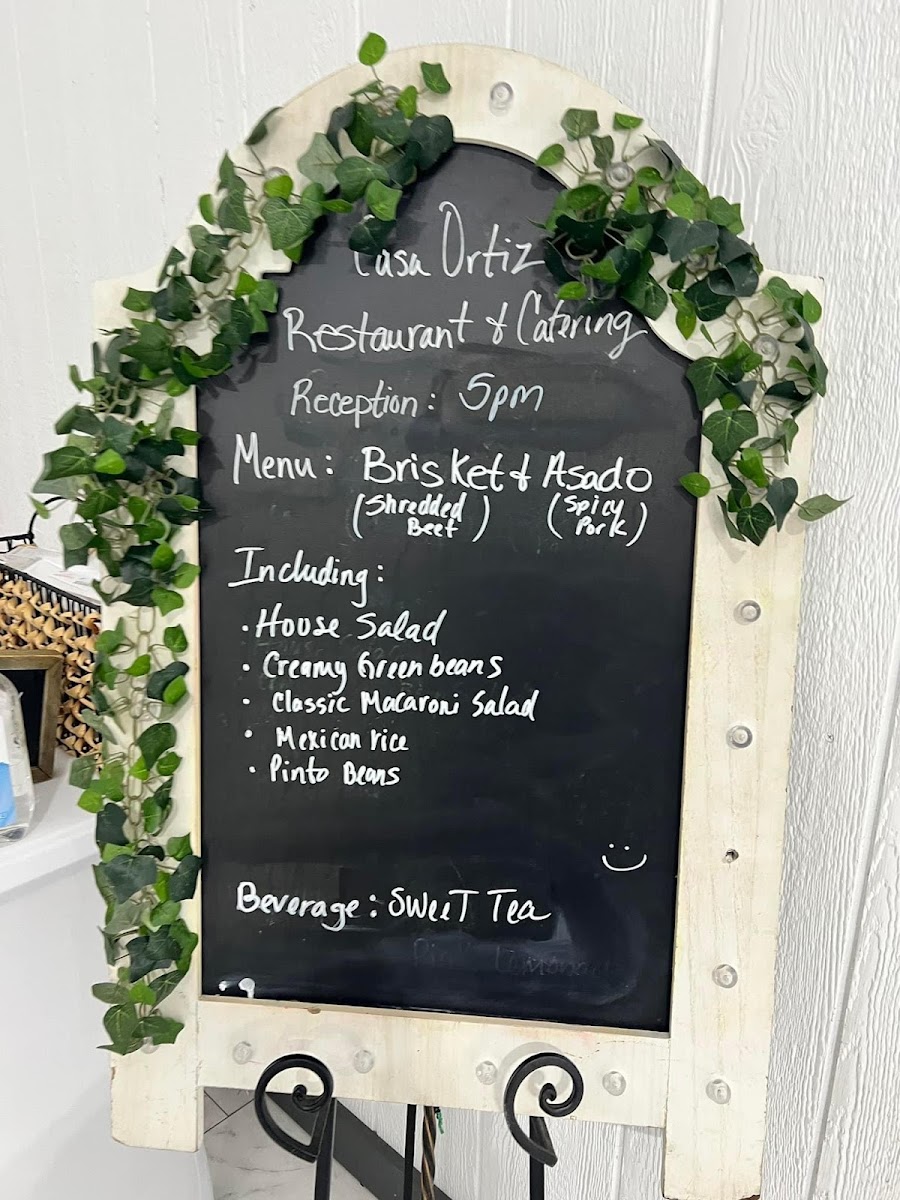 Casa Ortiz
Restaurant & Catering
Reception: 5pm
Menu: Brisket & Asado
(Shredded Beef) (Spicy Pork)
Including:
• House Salad
• Creamy Green beans
• Classic Macaroni Salad
• Mexican rice
• Pinto Beans
Beverage: Sweet Tea